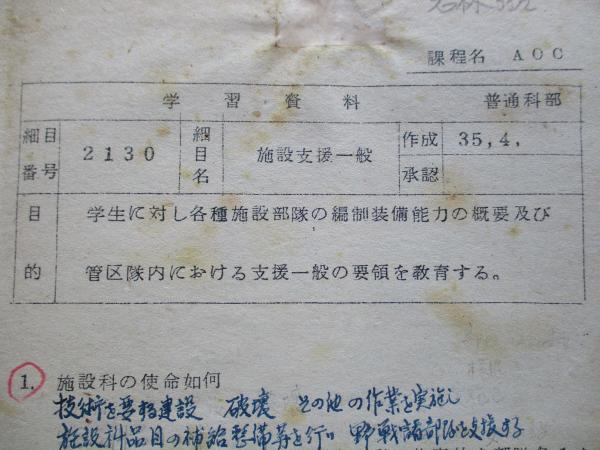 課程名 AOC
学習資料 普通科部
細目番号 2130 細目名 施設支援一般 作成 35,4,
承認
目的 学生に対し各種施設部隊の編制装備能力の概要及び
管区隊内における支援一般の要領を教育する。
1. 施設科の使命如何
技術を要する建設 破壊 その他の作業を実施し
施設科品目の補給整備等を行い 野戦諸部隊を支援する